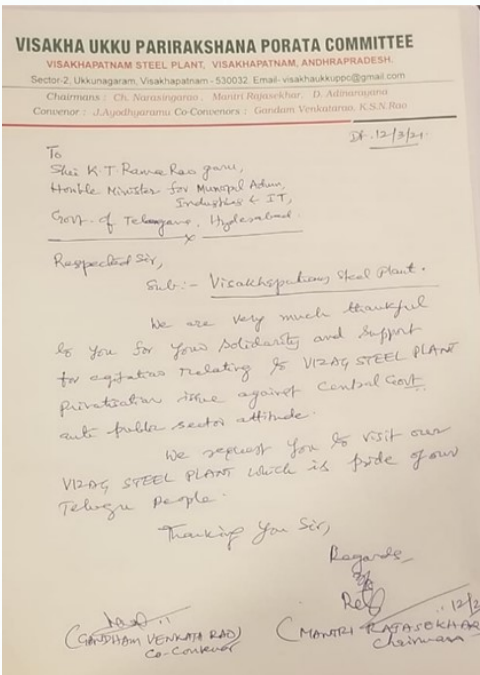 VISAKHA UKKU PARIRAKSHANA PORATA COMMITTEE
VISAKHAPATNAM STEEL PLANT, VISAKHAPATNAM, ANDHRAPRADESH.
Sector-2, Ukkunagaram, Visakhapatnam - 530032. Email- visakhaukkuppc@gmail.com
Chairmans : Ch. Narasingarao, Mantri Rajasekhar, D. Adinarayana
Convenor : J.Ayodhyaramu Co-Convenors : Gandam Venkatarao, K.S.N.Rao
Dt. 12/3/21.
To
Shri K.T. Rama Rao garu,
Honble Minister for Municipal Admn,
Industries & IT,
Govt. of Telangana, Hyderabad.
Respected Sir,
Sub:- Visakhapatnam Steel Plant.
We are very much thankful
to you for your solidarity and support
for agitation relating to VIZAG STEEL PLANT
privatisation issue against Central Govt
anti public sector attitude.
We request you to visit our
VIZAG STEEL PLANT which is pride of our
Telugu People.
Thanking You Sir,
Regards,
12/3
(GANDHAM VENKATA RAO)
Co-Convenor
(MANTRI RAJASEKHAR
Chairman